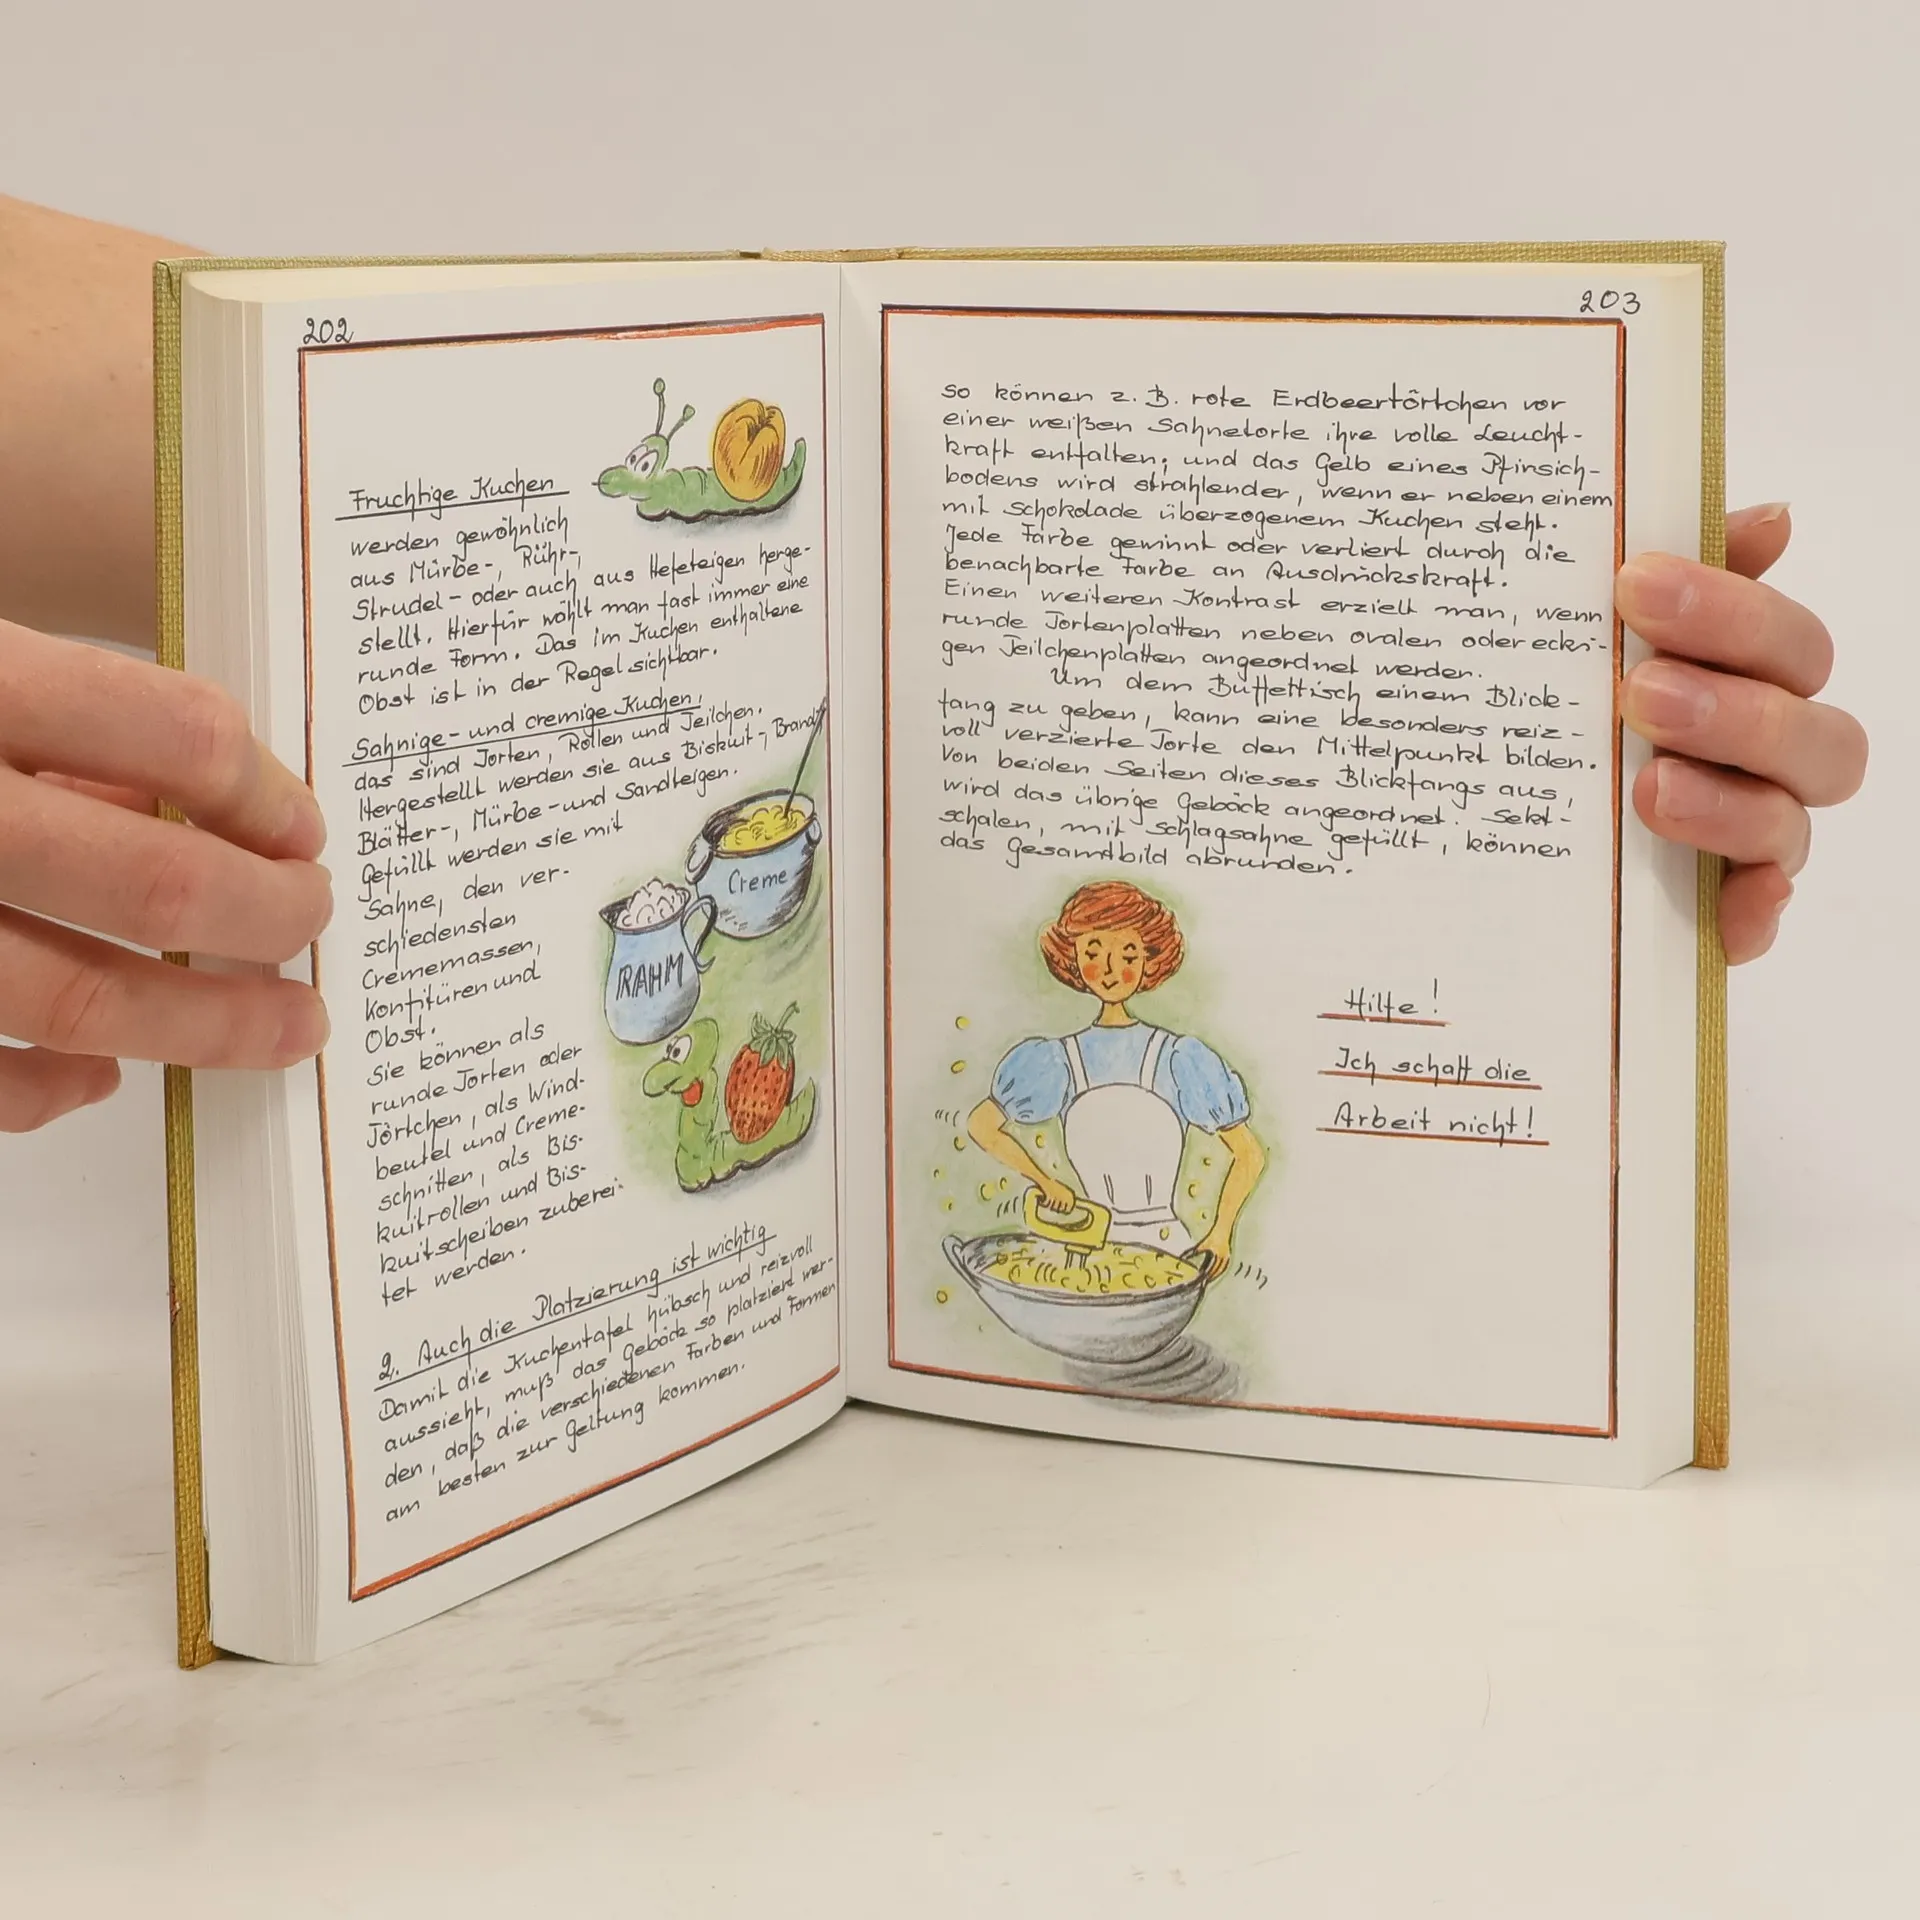 202
Fruchtige Kuchen
werden gewöhnlich
aus Mürbe-, Rühr-,
Strudel- oder auch aus Hefeteigen herge-
stellt. Hierfür wählt man fast immer eine
runde Form. Das im Kuchen enthaltene
Obst ist in der Regel sichtbar.
Sahnige- und cremige Kuchen,
das sind Torten, Rollen und Teilchen.
Hergestellt werden sie aus Biskuit-, Brand-,
Blätter-, Mürbe- und Sandteigen.
Gefüllt werden sie mit
Sahne, den ver-
schiedensten
Crememassen,
Konfitüren und
Obst.
Sie können als
runde Torten oder
Törtchen, als Wind-
beutel und Creme-
schnitten, als Bis-
kuitrollen und Bis-
kuitscheiben zuberei-
tet werden.
Creme
RAHM
2. Auch die Platzierung ist wichtig
Damit die Kuchentafel hübsch und reizvoll
aussieht, muß das Gebäck so platziert wer-
den, daß die verschiedenen Farben und Formen
am besten zur Geltung kommen.
203
so können z. B. rote Erdbeertörtchen vor
einer weißen Sahnetorte ihre volle Leucht-
kraft entfalten; und das Gelb eines Pfirsich-
bodens wird strahlender, wenn er neben einem
mit Schokolade überzogenem Kuchen steht.
Jede Farbe gewinnt oder verliert durch die
benachbarte Farbe an Ausdruckskraft.
Einen weiteren Kontrast erzielt man, wenn
runde Tortenplatten neben ovalen oder ecki-
gen Teilchenplatten angeordnet werden.
Um dem Buffettisch einem Blick-
fang zu geben, kann eine besonders reiz-
voll verzierte Torte den Mittelpunkt bilden.
Von beiden Seiten dieses Blickfangs aus,
wird das übrige Gebäck angeordnet. Sekt-
schalen, mit Schlagsahne gefüllt, können
das Gesamtbild abrunden.
Hilfe!
Ich schaff die
Arbeit nicht!